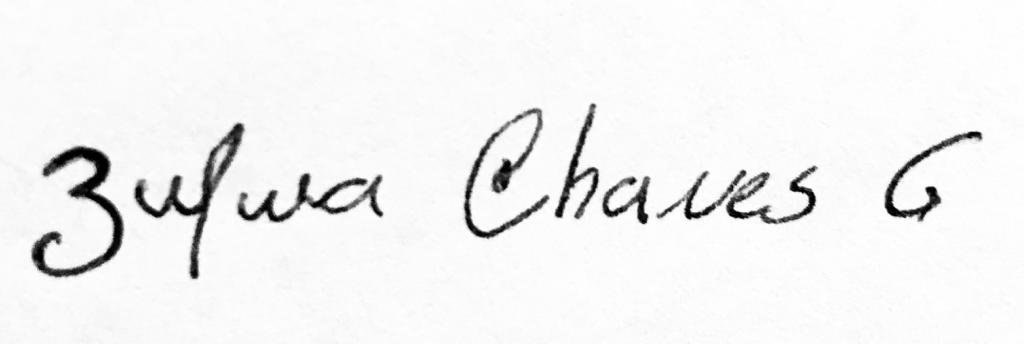 Zulma Chaves G